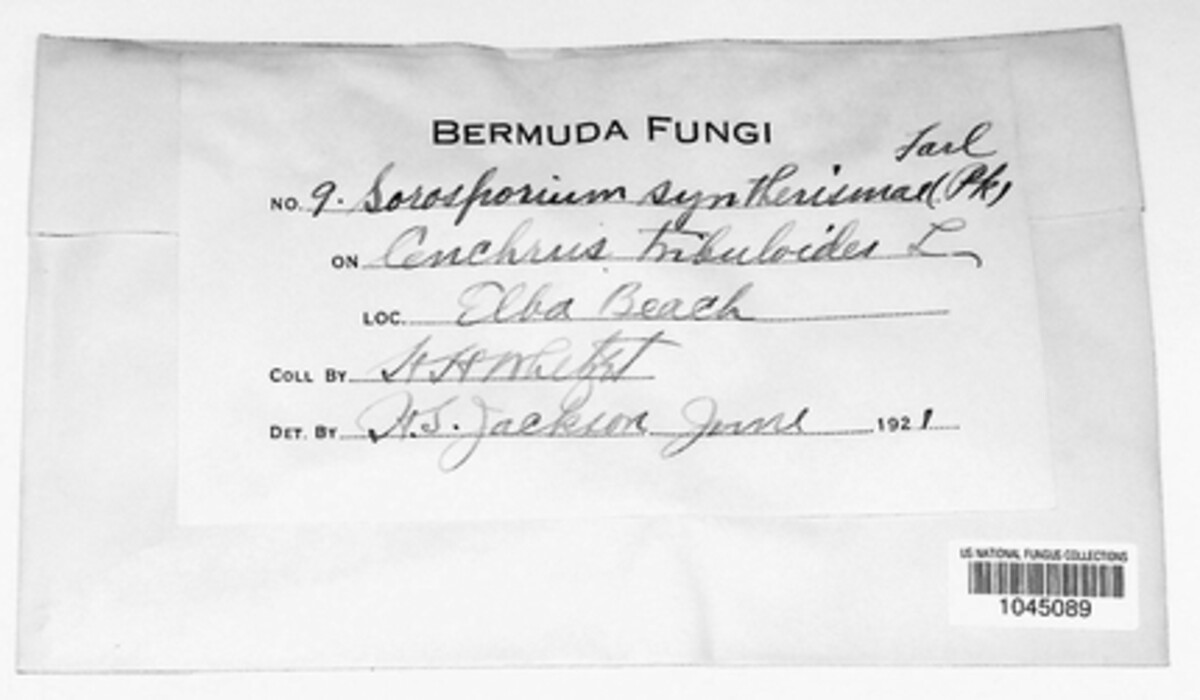 BERMUDA FUNGI
Farl
NO. 9. Sorosporium syntherismae (Pk)
ON Cenchrus tribuloides L
LOC. Elba Beach
COLL BY H H Whetzel
DET. BY H.S. Jackson June 1921
US NATIONAL FUNGUS COLLECTIONS
1045089